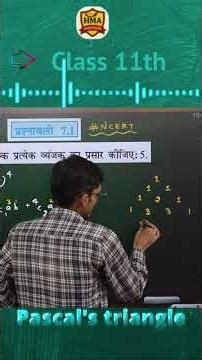 HMA
Class 11th
प्रश्नावली 7.1
#NCERT
प्रत्येक व्यंजक का प्रसार कीजिए: 5.
1
1 1
1 2 1
1 3 3 1
Pascal's triangle